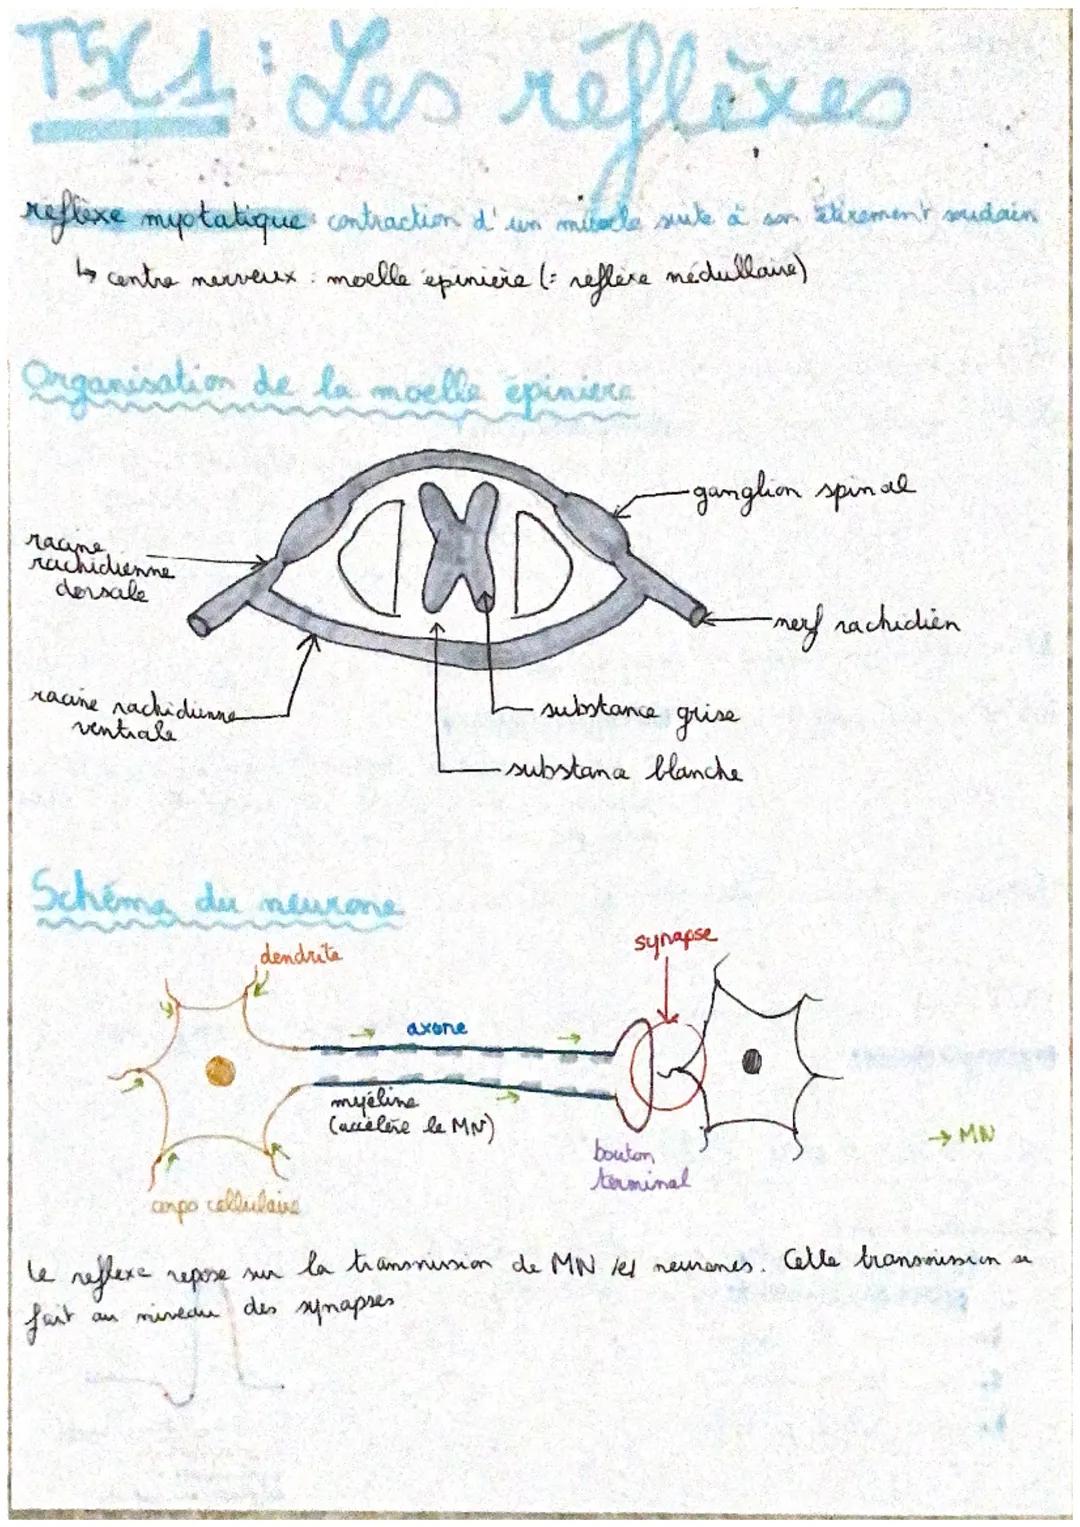 T5C1 : Les réflèxes
reflexe myotatique : contraction d'un muscle suite à son étirement soudain
↳ centre nerveux : moelle épinière (= reflexe médullaire)
Organisation de la moelle épiniere
ganglion spinal
racine
rachidienne
dorsale
nerf rachidien
racine rachidienne
ventrale
substance grise
substance blanche
Schéma du neurone
dendrite
synapse
axone
myéline
(accélère le MN)
bouton
terminal
→ MN
corps cellulaire
Le reflexe repose sur la transmission de MN neurones. Cette transmission se
fait au niveau des synapses